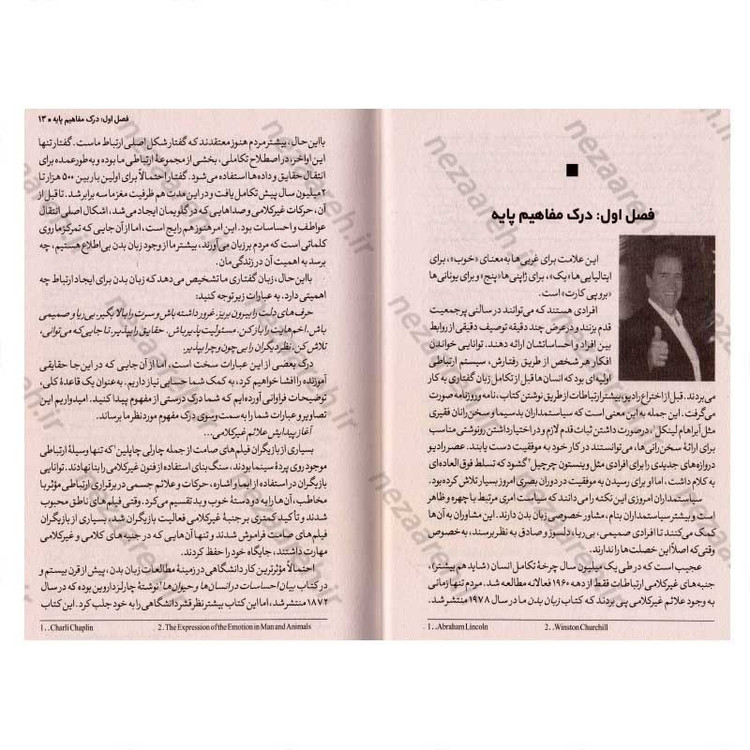 فصل اول: درک مفاهیم پایه
این علامت برای غربی‌ها به معنای «خوب»، برای
ایتالیایی‌ها «یک»، برای ژاپنی‌ها «پنج» و برای یونانی‌ها
«برو پی کارت» است.
افرادی هستند که می‌توانند در سالنی پرجمعیت
قدم بزنند و در عرض چند دقیقه توصیف دقیقی از روابط
بین افراد و احساساتشان ارائه دهند. توانایی خواندن
افکار هر شخص از طریق رفتارش، سیستم ارتباطی
اولیه‌ای بود که انسان‌ها قبل از تکامل زبان گفتاری به کار
می‌بردند. قبل از اختراع رادیو، بیشتر ارتباطات از طریق نوشتن کتاب، نامه و روزنامه صورت
می‌گرفت. این جمله به این معنی است که سیاستمداران بدسیما و سخنرانان فقیری
مثل آبراهام لینکلن۱، درصورت داشتن ثبات قدم لازم و در اختیار داشتن رونوشتی مناسب
برای ارائهٔ سخن‌رانی‌ها، می‌توانستند در کار خود به موفقیت دست یابند. عصر رادیو
دروازه‌های جدیدی را برای افرادی مثل وینستون چرچیل۲ گشود که تسلط فوق العاده‌ای
به کلام داشت، اما او برای رسیدن به موفقیت در دوران بصری امروز بسیار تلاش کرده بود.
سیاستمداران امروزی این نکته را می‌دانند که سیاست امری مرتبط با چهره و ظاهر
است و بیشتر سیاستمداران بنام، مشاور خصوصی زبان بدن دارند. این مشاوران به آن‌ها
کمک می‌کنند تا افرادی صمیمی، بی‌ریا، دلسوز و صادق به نظر برسند، به خصوص
وقتی که اصلاً این خصلت‌ها را ندارند.
عجیب است که در طی یک میلیون سال چرخهٔ تکامل انسان (شاید هم بیشتر)،
جنبه‌های غیرکلامی ارتباطات فقط از دهه ۱۹۶۰ فعالانه مطالعه شد. مردم تنها زمانی
به وجود علائم غیرکلامی پی بردند که کتاب زبان بدن ما در سال ۱۹۷۸ منتشر شد.
1. .Abraham Lincoln 2. .Winston Churchill
فصل اول: درک مفاهیم پایه ● ۱۳
با این حال، بیشتر مردم هنوز معتقدند که گفتار شکل اصلی ارتباط ماست. گفتار تنها
این اواخر، در اصطلاح تکاملی، بخشی از مجموعهٔ ارتباطی ما بوده و به‌طور عمده برای
انتقال حقایق و داده‌ها استفاده می‌شود. گفتار احتمالاً برای اولین بار بین ۵۰۰ هزار تا
۲ میلیون سال پیش تکامل یافت و در این مدت هم ظرفیت مغز ما سه برابر شد. تا قبل از
آن، حرکات غیرکلامی و صداهایی که در گلویمان ایجاد می‌شد، اشکال اصلی انتقال
عواطف و احساسات بود. این امر هنوز هم رایج است، اما از آن جایی که تمرکز ما روی
کلماتی است که مردم بر زبان می‌آورند، بیشتر ما از وجود زبان بدن بی‌اطلاع هستیم، چه
برسد به اهمیت آن در زندگی‌مان.
با این حال، زبان گفتاری ما تشخیص می‌دهد که زبان بدن برای ایجاد ارتباط چه
اهمیتی دارد. به عبارات زیر توجه کنید:
حرف‌های دلت را بیرون بریز. غرور داشته باش و سرت را بالا بگیر. بی‌ریا و صمیمی
باش. اخم‌هایت را باز کن. مسئولیت پذیر باش. حقایق را بپذیر. تا جایی که می‌توانی،
تلاش کن. نظر دیگران را بی‌چون و چرا بپذیر.
درک بعضی از این عبارات سخت است، اما از آن جایی که در این جا حقایقی
آموزنده را افشا خواهیم کرد، به کمک شما حسابی نیاز داریم. به عنوان یک قاعدهٔ کلی،
توضیحات فراوانی آورده‌ایم که شما درک درستی از مفهوم پیدا کنید. امیدواریم این
تصاویر و عبارات شما را به سمت و سوی درک مفهوم مورد نظر ما برساند.
آغاز پیدایش علائم غیرکلامی...
بسیاری از بازیگران فیلم های صامت از جمله چارلی چاپلین۱ که تنها وسیلهٔ ارتباطی
موجود روی پردهٔ سینما بودند، سنگ بنای استفاده از فنون غیرکلامی را بنا نهادند. توانایی
بازیگران در استفاده از ایما و اشاره، حرکات و علائم جسمی در برقراری ارتباطی مؤثر با
مخاطب، آن‌ها را به دو دستهٔ خوب و بد تقسیم می‌کرد. وقتی فیلم های ناطق محبوب
شدند و تأکید کمتری بر جنبهٔ غیرکلامی فعالیت بازیگران شد، بسیاری از بازیگران
فیلم های صامت فراموش شدند و تنها آن‌هایی که در جنبه‌های کلامی و غیرکلامی
مهارت داشتند، جایگاه خود را حفظ کردند.
احتمالاً مؤثرترین کار دانشگاهی در زمینهٔ مطالعات زبان بدن، پیش از قرن بیستم و
در کتاب بیان احساسات در انسان‌ها و حیوان‌ها۲ نوشتهٔ چارلز داروین بوده که در سال
۱۸۷۲ منتشر شد، اما این کتاب بیشتر نظر قشر دانشگاهی را به خود جلب کرد. این کتاب
1. .Charli Chaplin 2. The Expression of the Emotion in Man and Animals
nezaareh.ir